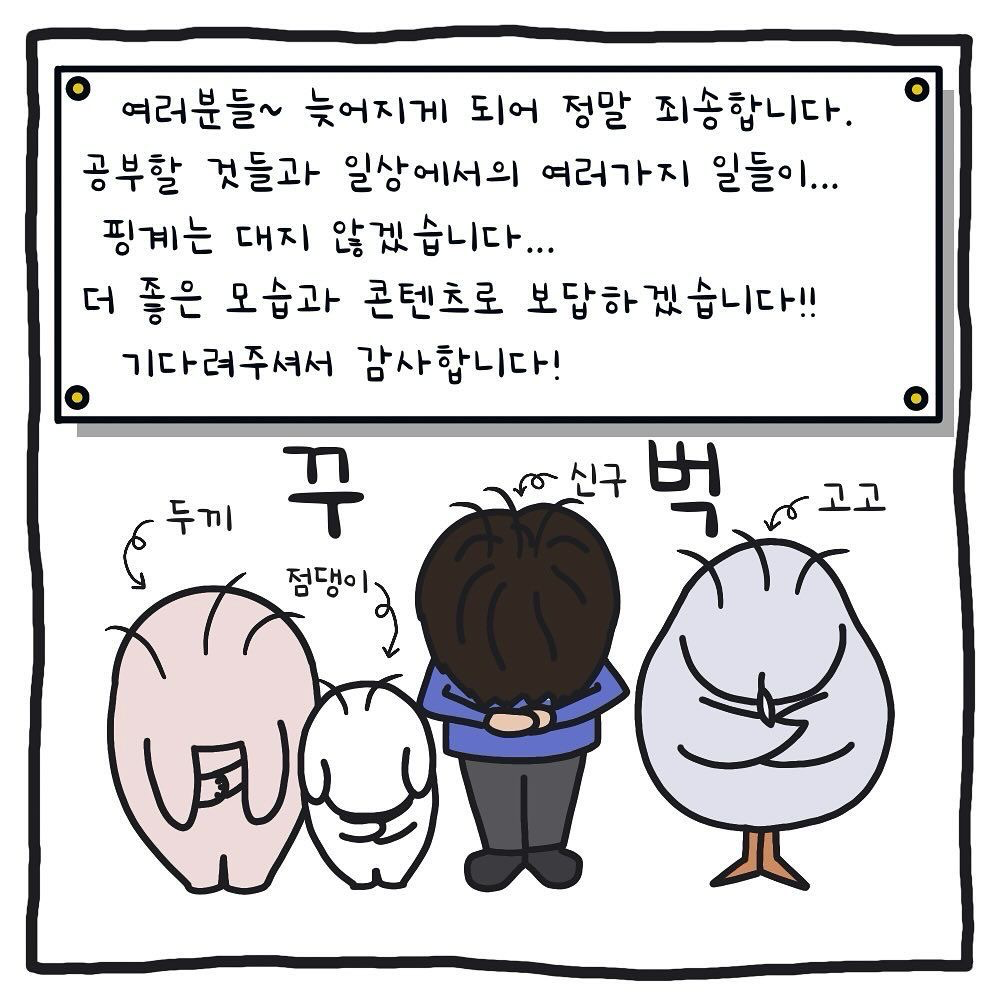 여러분들~ 늦어지게 되어 정말 죄송합니다.
공부할 것들과 일상에서의 여러가지 일들이...
핑계는 대지 않겠습니다...
더 좋은 모습과 콘텐츠로 보답하겠습니다!!
기다려주셔서 감사합니다!
꾸 벅
두끼
점댕이
신구
고고